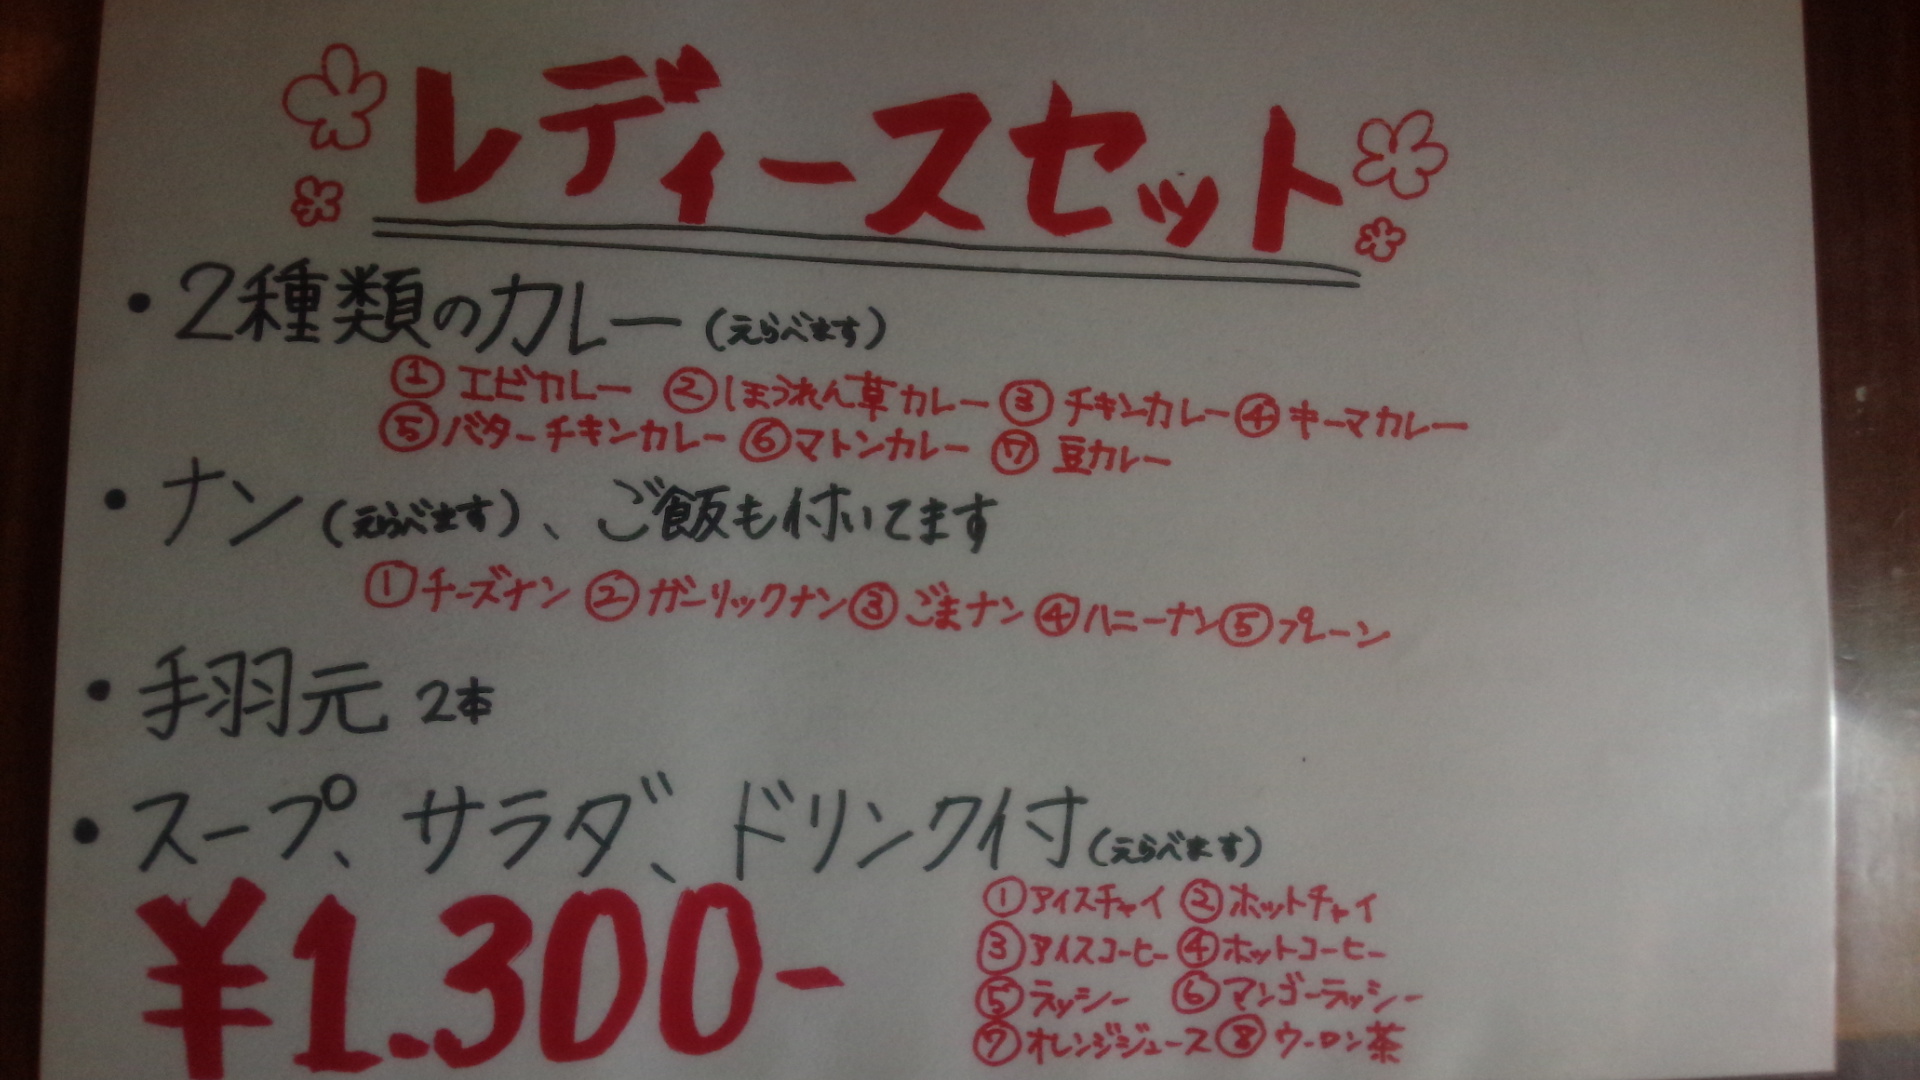 レディースセット
・2種類のカレー(えらべます)
①エビカレー ②ほうれん草カレー ③チキンカレー ④キーマカレー
⑤バターチキンカレー ⑥マトンカレー ⑦豆カレー
・ナン(えらべます)、ご飯も付いてます
①チーズナン ②ガーリックナン ③ごまナン ④ハニーナン ⑤プレーン
・手羽元 2本
・スープ、サラダ、ドリンク付(えらべます)
¥1.300-
①アイスチャイ ②ホットチャイ
③アイスコーヒー ④ホットコーヒー
⑤ラッシー ⑥マンゴーラッシー
⑦オレンジジュース ⑧ウーロン茶